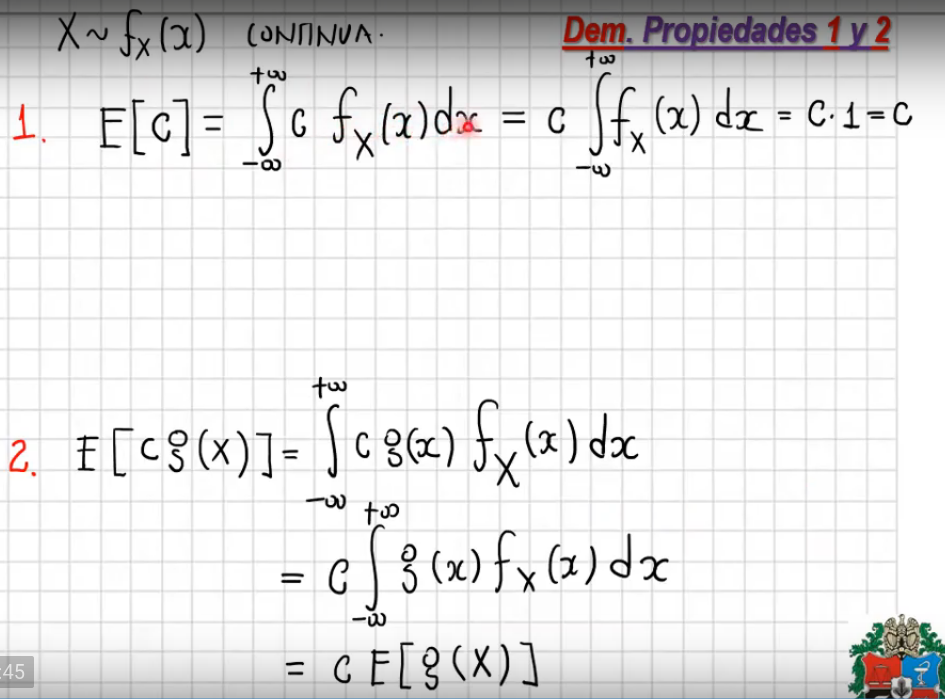 X ~ f_X(x) CONTINUA.
Dem. Propiedades 1 y 2
1. E[c] = ∫_{-∞}^{+∞} c f_X(x) dx = c ∫_{-∞}^{+∞} f_X(x) dx = c·1 = c
2. E[c g(X)] = ∫_{-∞}^{+∞} c g(x) f_X(x) dx
= c ∫_{-∞}^{+∞} g(x) f_X(x) dx
= c E[g(X)]
:45